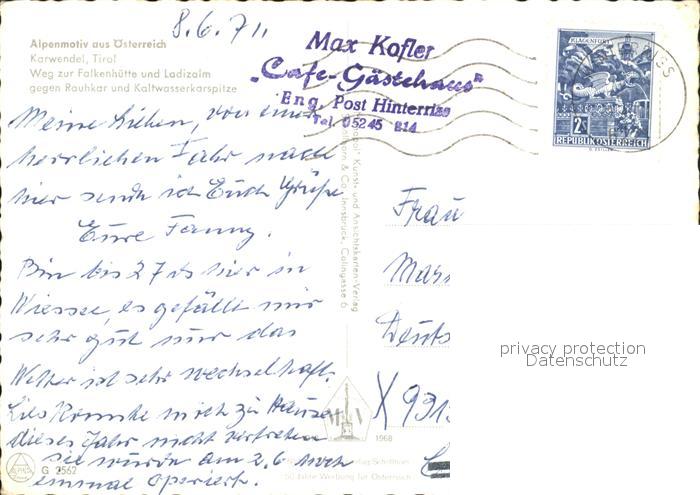 8.6.71.
Alpenmotiv aus Österreich
Karwendel, Tirol
Weg zur Falkenhütte und Ladizalm
gegen Rauhkar und Kaltwasserkarspitze
Max Kofler
„Cafe-Gästehaus"
Eng, Post Hinterriss
Tel. 05245 214
KLAGENFURT
2S
REPUBLIK ÖSTERREICH
Meine Lieben, von einer
herrlichen Fahrt nach
hier sende ich Euch Grüße
Eure Fanny.
Bin bis 27ts hier in
Wiessee, es gefällt mir
sehr gut nur das
Wetter ist sehr wechselhaft.
Lies konnte mich zu Hause
dieses Jahr nicht vertreten
sie wurde am 2.6 noch
einmal operiert.
Kunst- und Ansichtskarten-Verlag
& Co., Innsbruck, Colingasse 6
Frau
Mar
Deuts
X 931
1968
G 2562
50 Jahre Werbung für Österreich
privacy protection
Datenschutz